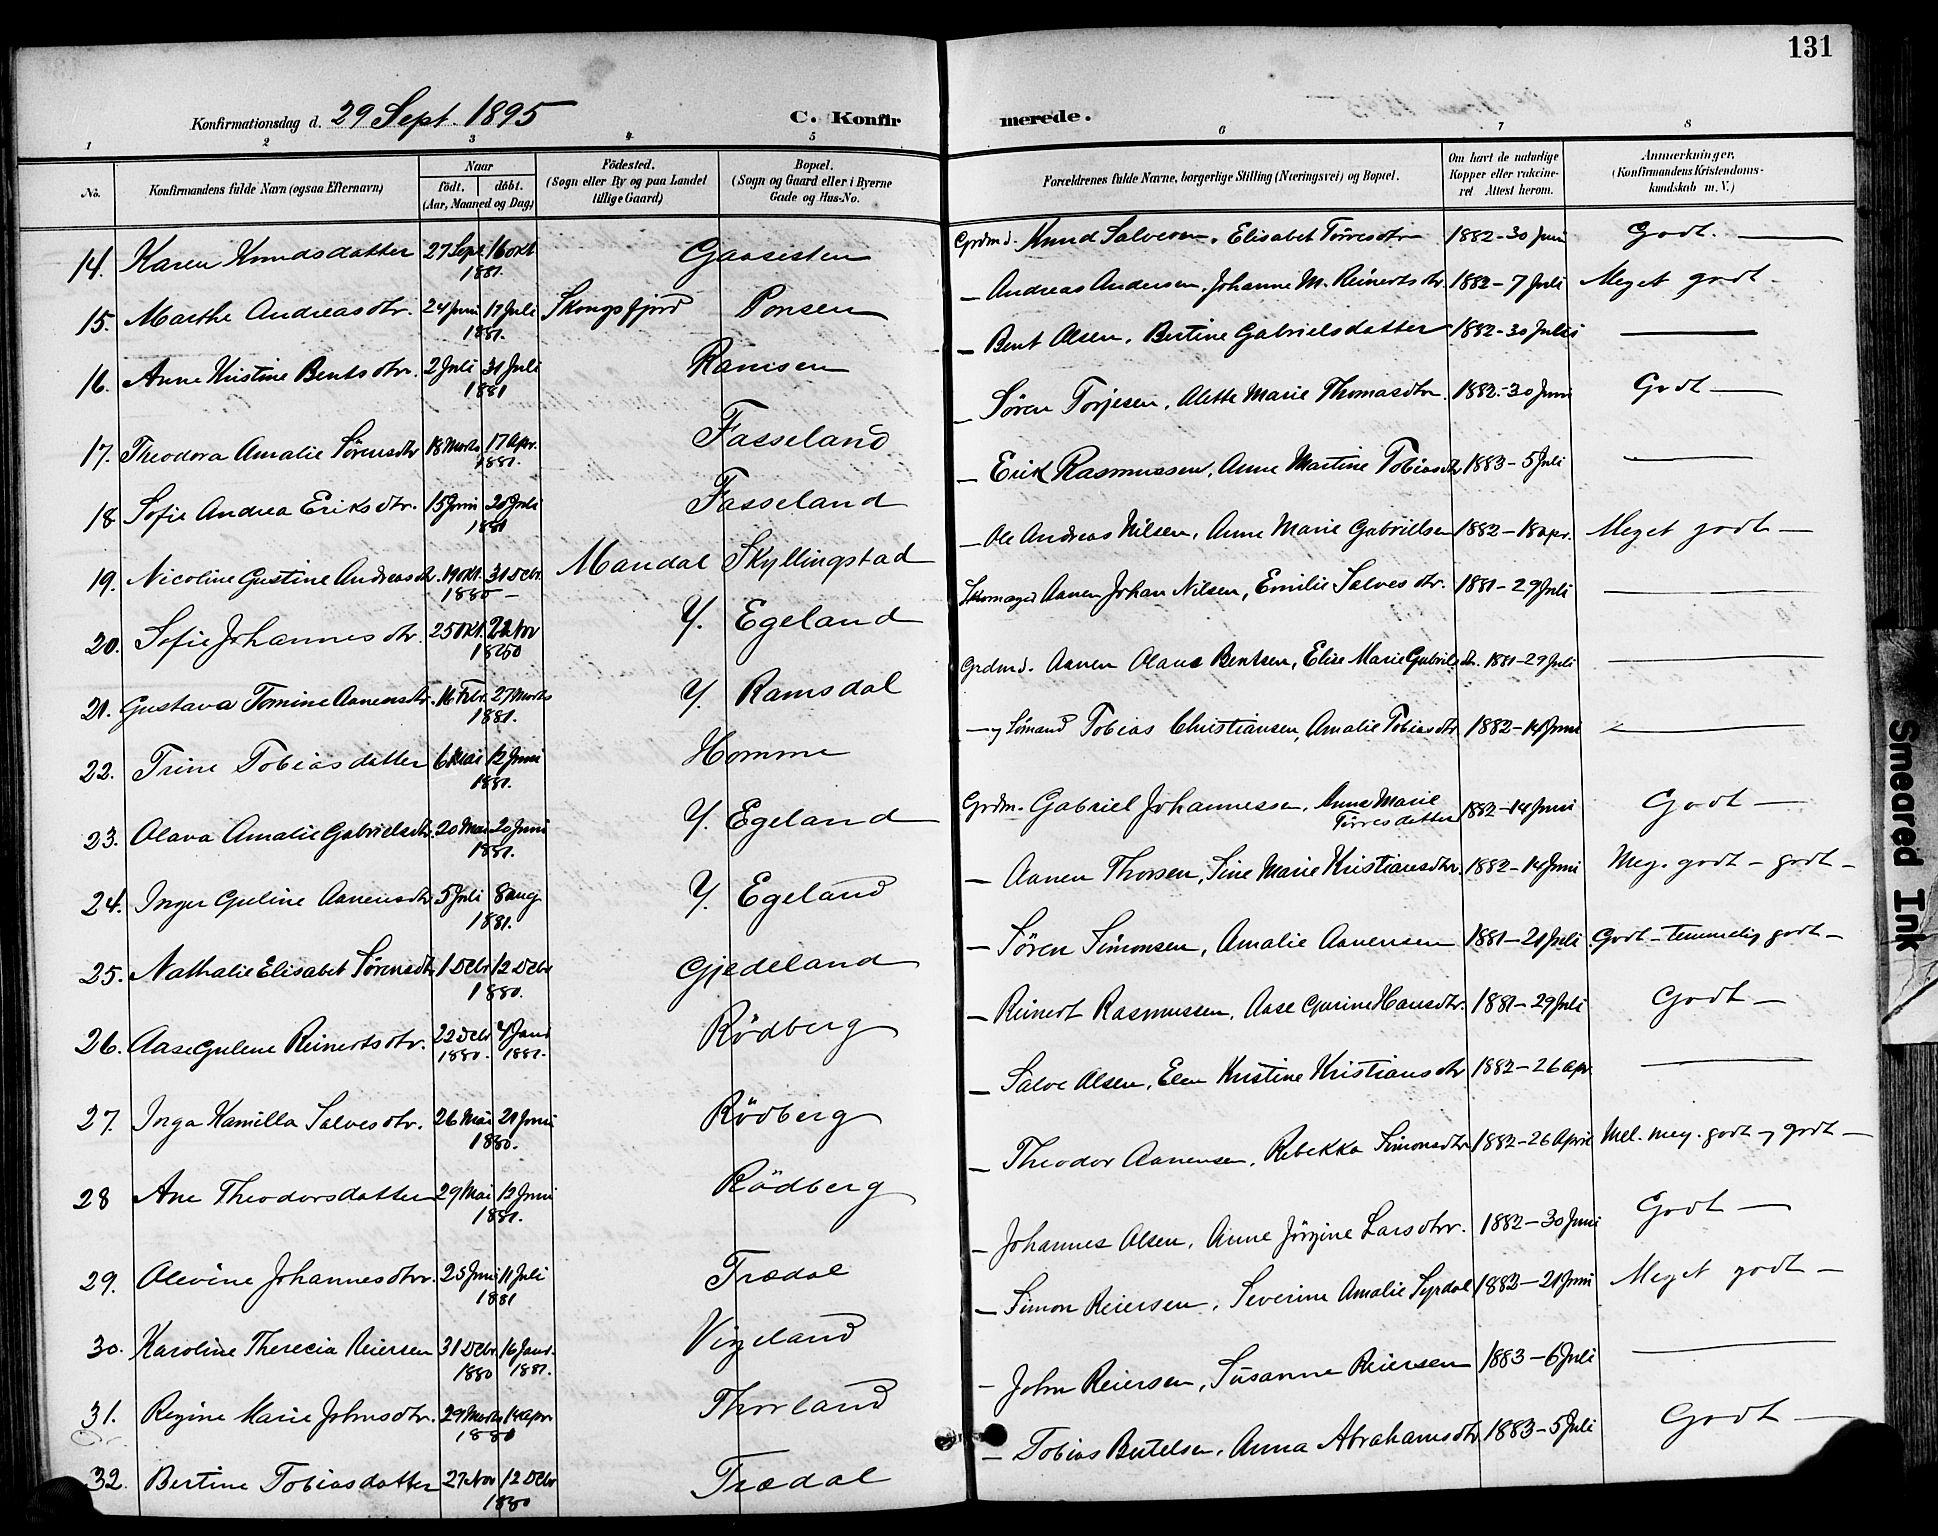 131
Konfirmationsdag d. 29 Sept. 1895 C. Konfirmerede.
1 2 3 4 5 6 7 8
No. Konfirmandens fulde Navn (ogsaa Efternavn) Naar født. døbt. (Aar, Maaned og Dag) Födested. (Sogn eller By og paa Landet tillige Gaard) Bopæl. (Sogn og Gaard eller i Byerne Gade og Hus-No. Forældrenes fulde Navne, borgerlige Stilling (Næringsvei) og Bopæl. Om havt de naturlige Kopper eller vakcineret Attest herom. Anmærkninger. (Konfirmandens Kristendomskundskab m. V.)
14. Karen Knudsdatter 27 Sept. 16 okt 1881. Gaasesten Grdmd. Knud Salvesen, Elisabet Tørresdtr 1882-30 Juni Godt. —
15. Marthe Andreasdtr. 24 Juni 17 Juli 1881. Skongsfjord Ponsen — Andreas Andersen, Johanne M. Reinertsdtr. 1882-7 Juli Meget godt —
16. Anne Kristine Bentsdtr. 2 Juli 31 Juli 1881 Ramsen — Bent Olsen, Bertine Gabrielsdatter 1882-30 Juli —
17. Theodora Amalie Sørensdtr 18 Marts 17 Apr. 1881. Fasseland — Søren Torjesen, Alette Marie Thomasdtr. 1882-30 Juni Godt —
18 Sofie Andrea Eriksdtr. 15 Juni 20 Juli 1881 Fasseland — Erik Rasmussen, Anne Martine Tobiasdtr 1883-5 Juli —
19. Nicoline Gustine Andreasdtr. 19 Okt. 31 Decbr. 1880 — Mandal Skyllingstad — Ole Andreas Nilsen, Anne Marie Gabrielsen 1882-18 apr. Meget godt —
20. Sofie Johannesdtr. 25 Okt. 22 Nov 1880 Y. Egeland Skomager Aanen Johan Nilsen, Emilie Salvesdtr. 1881-29 Juli —
21. Gustava Tomine Aanensdtr. 16 Febr. 27 Marts 1881. Y. Ramsdal Grdmd. Aanen Olaus Bentsen, Elise Marie Gabrielsdtr. 1881-29 Juli —
22. Trine Tobiasdatter 6 Mai 12 Juni 1881. Homme — og Sømand Tobias Christiansen, Amalie Tobiasdtr 1882-14 Juni —
23. Olava Amalie Gabrielsdtr 20 Mai 20 Juni 1881. Y. Egeland Grdm. Gabriel Johannessen, Anne Marie Tørresdatter 1882-14 Juni Godt —
24. Inger Guline Aanensdtr 5 Juli 8 aug 1881. Y. Egeland — Aanen Thorsen, Sine Marie Kristiansdtr. 1882-14 Juni Meg. godt — godt —
25. Nathalie Elisabet Sørensdtr 1 Decbr 12 Decbr 1880. Gjedeland — Søren Simonsen, Amalie Aanensen 1881-21 Juli Godt — temmelig godt —
26. Aase Gulene Reinertsdtr. 22 Decbr 1880. 4 Janr 1881. Rödberg — Reinert Rasmussen, Aase Gurine Hansdtr. 1881-29 Juli Godt —
27. Inga Kamilla Salvesdtr. 26 Mai 21 Juni 1880. Rödberg — Salve Olsen, Elen Kristine Kristiansdtr 1882-26 apr. —
28 Ane Theodorsdatter 29 Mai 12 Juni 1881. Rödberg — Theodor Aanensen, Rebekka Simonsdtr 1882-26 April Mel. meg. godt og godt —
29. Olevine Johannesdtr. 25 Juni 11 Juli 1881 Trædal — Johannes Olsen, Anne Jörgine Larsdtr. 1882-30 Juni Godt —
30. Karoline Therecia Reiersen 31 Decbr 1880 16 Janr. 1881. Vigeland — Simon Reiersen, Severine Amalie Syrdal 1883-21 Juni Meget godt —
31. Regine Marie Johnsdtr. 29 Marts 14 apr 1880 Thorland — John Reiersen, Susanne Reiersen 1883-6 Juli —
32. Bertine Tobiasdatter 27 Nov 12 Decbr 1880 Trædal — Tobias Bertelsen, Anna Abrahamsdtr 1883-5 Juli Godt —
Smeared Ink